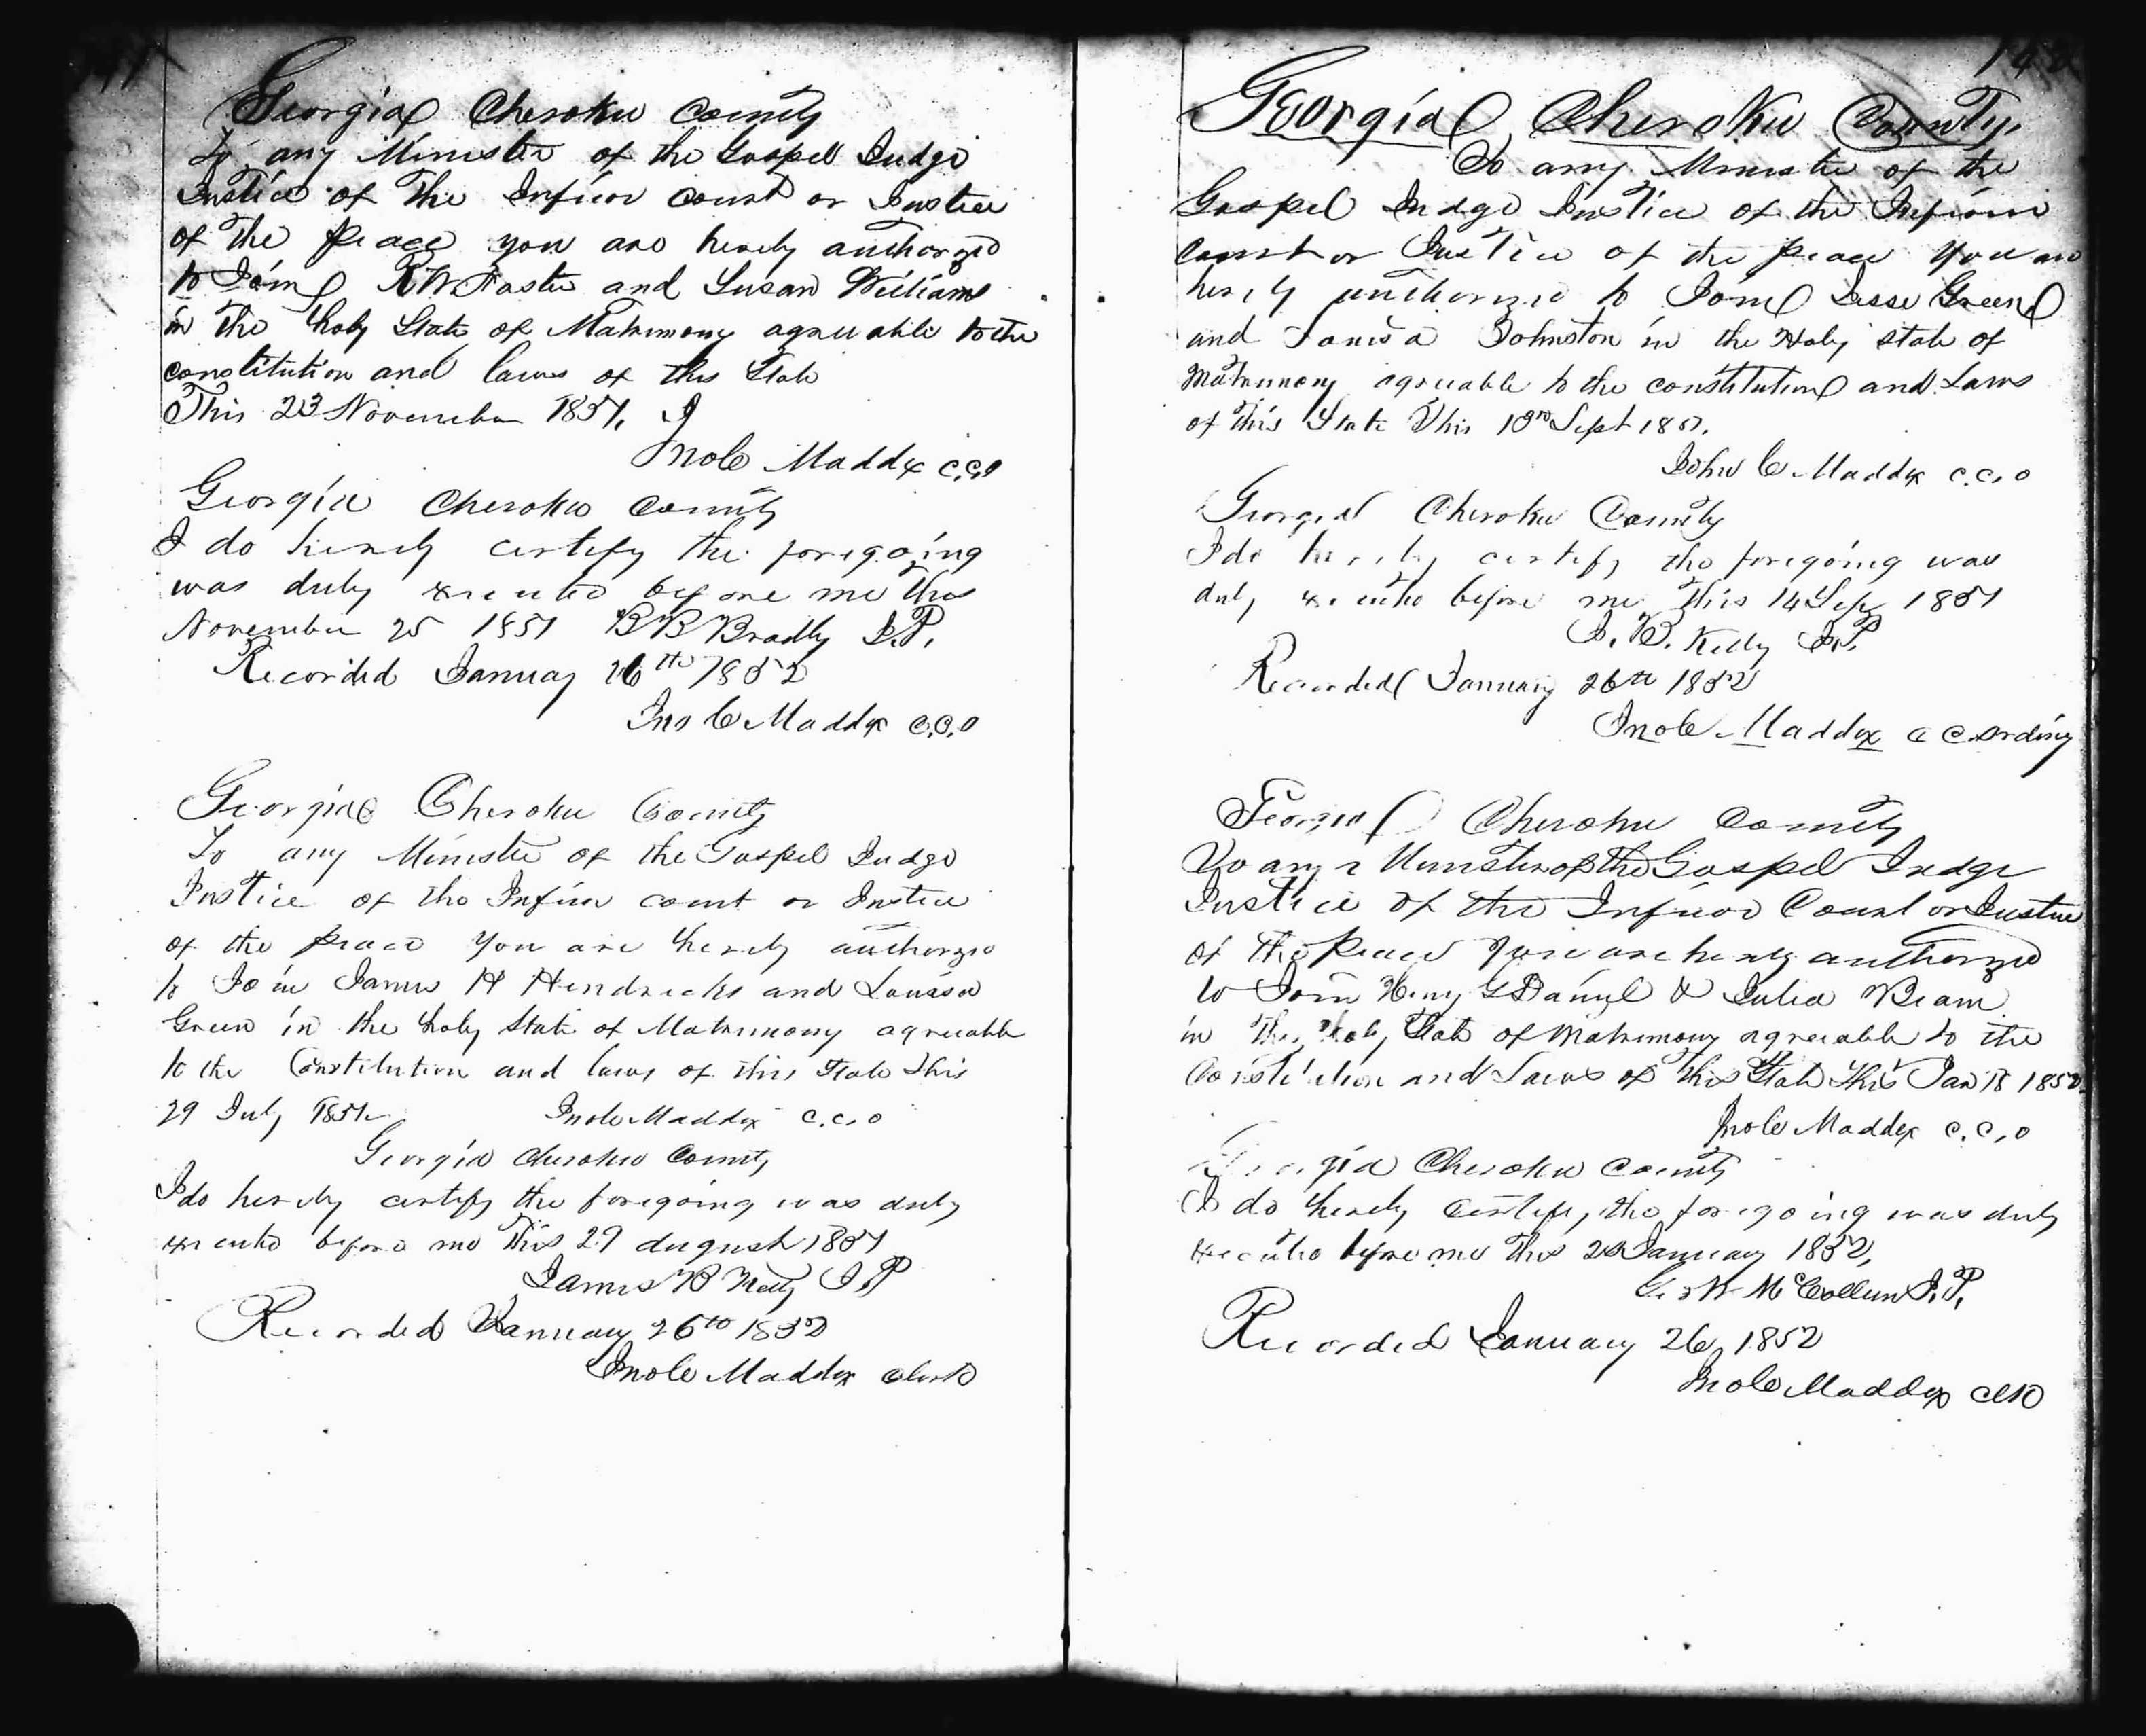 141
Georgia Cherokee County
To any Minister of the Gospel Judge
Justice of the Inferior court or Justice
of the peace you are hereby authorized
to Join R W Foster and Susan Williams
in the holy State of Matrimony agreeable to the
constitution and laws of this State
This 23 November 1851.
Jno C Maddox C.C.O
Georgia Cherokee County
I do hereby certify the foregoing
was duly executed before me this
November 25 1851 B B Bradly J.P.
Recorded January 26th 1852
Jno C Maddox C.C.O
Georgia Cherokee County
To any Minister of the Gospel Judge
Justice of the Inferior court or Justice
of the peace you are hereby authorized
to Join James H Hendricks and Louisa
Green in the holy State of Matrimony agreeable
to the Constitution and laws of this State This
29 July 1851 Jno C Maddox C.C.O
Georgia Cherokee County
I do hereby certify the foregoing was duly
executed before me this 29 August 1851
James B Kelly J.P
Recorded January 26th 1852
Jno C Maddox Clerk
142
Georgia Cherokee County,
To any Minister of the
Gospel Judge Justice of the Inferior
Court or Justice of the peace You are
hereby authorized to Join Jesse Green
and Johnston in the Holy state of
Matrimony agreeable to the constitution and Laws
of this State This Sept 1851.
John C Maddox C.C.O
Georgia Cherokee County
I do hereby certify the foregoing was
duly executed before me this 14 Sep 1851
J. B. Kelly J.P.
Recorded January 26th 1852
Jno C Maddox C C Ordinary
Georgia Cherokee County
To any Minister of the Gospel Judge
Justice of the Inferior Court or Justice
of the Peace You are hereby authorized
to Join Henry G & Julia Beam
in the holy State of Matrimony agreeable to the
Constitution and Laws of this State this Jan 18 1852
Jno C Maddox C.C.O
Georgia Cherokee County
I do hereby certify, the foregoing was duly
executed before me this January 1852,
McCollum J.P.
Recorded January 26, 1852
Jno C Maddox Clk